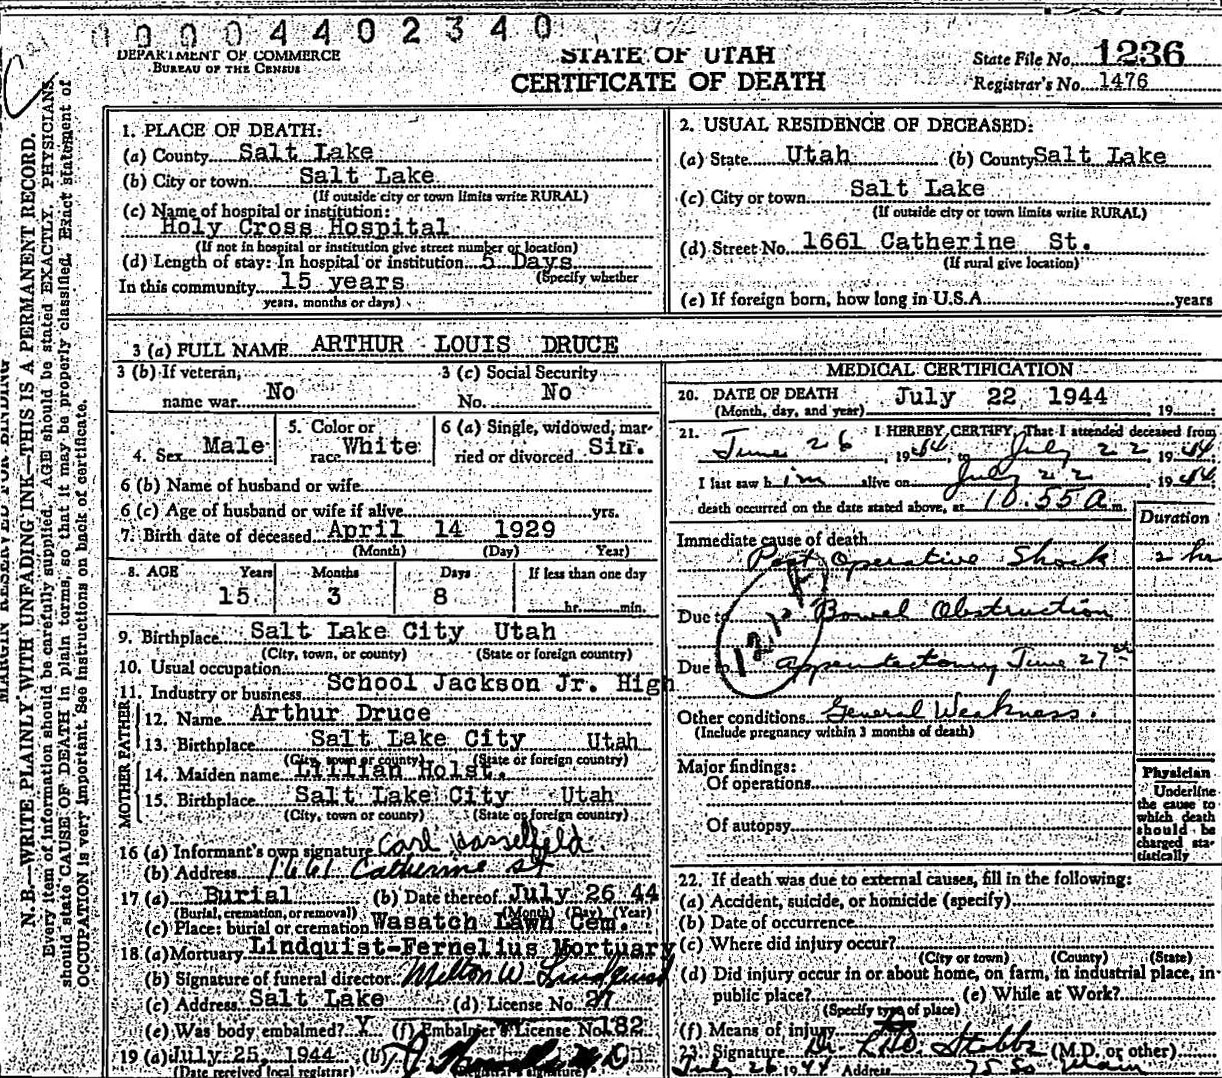 0 0 0 0 4 4 0 2 3 4 0
DEPARTMENT OF COMMERCE
BUREAU OF THE CENSUS
STATE OF UTAH
CERTIFICATE OF DEATH
State File No. 1236
Registrar's No. 1476
MARGIN RESERVED FOR BINDING
N. B.—WRITE PLAINLY WITH UNFADING INK—THIS IS A PERMANENT RECORD.
Every item of information should be carefully supplied. AGE should be stated EXACTLY. PHYSICIANS
should state CAUSE OF DEATH in plain terms, so that it may be properly classified. Exact statement of
OCCUPATION is very important. See instructions on back of certificate.
1. PLACE OF DEATH:
(a) County Salt Lake
(b) City or town Salt Lake
(If outside city or town limits write RURAL)
(c) Name of hospital or institution:
Holy Cross Hospital
(If not in hospital or institution give street number or location)
(d) Length of stay: In hospital or institution 5 Days
(Specify whether
In this community 15 years
years, months or days)
2. USUAL RESIDENCE OF DECEASED:
(a) State Utah (b) County Salt Lake
(c) City or town Salt Lake
(If outside city or town limits write RURAL)
(d) Street No. 1661 Catherine St.
(If rural give location)
(e) If foreign born, how long in U.S.A. years
3 (a) FULL NAME ARTHUR LOUIS DRUCE
3 (b) If veteran,
name war No
3 (c) Social Security
No. No
4. Sex Male
5. Color or
race White
6 (a) Single, widowed, mar-
ried or divorced Sin.
6 (b) Name of husband or wife
6 (c) Age of husband or wife if alive yrs.
7. Birth date of deceased April 14 1929
(Month) (Day) Year)
8. AGE Years Months Days If less than one day
15 3 8 hr. min.
9. Birthplace Salt Lake City Utah
(City, town, or county) (State or foreign country)
10. Usual occupation
11. Industry or business School Jackson Jr. High
FATHER
12. Name Arthur Druce
13. Birthplace Salt Lake City Utah
(City, town or county) (State or foreign country)
MOTHER
14. Maiden name Lillian Holst.
15. Birthplace Salt Lake City Utah
(City, town or county) (State or foreign country)
16 (a) Informant's own signature Carl Hasselfeld.
(b) Address 1661 Catherine St
17 (a) Burial (b) Date thereof July 26 44
(Burial, cremation, or removal) (Month) (Day) (Year)
(c) Place: burial or cremation Wasatch Lawn Cem.
18 (a) Mortuary Lindquist-Fernelius Mortuary
(b) Signature of funeral director Milton W. Lindquist
(c) Address Salt Lake (d) License No. 27
(e) Was body embalmed? Y (f) Embalmer's License No. 182
19 (a) July 25, 1944 (b)
(Date received local registrar) (Registrar's signature)
MEDICAL CERTIFICATION
20. DATE OF DEATH July 22 1944
(Month, day, and year) 19
21. I HEREBY CERTIFY, That I attended deceased from
June 26, 1944, to July 22, 1944
I last saw him alive on July 22 1944
death occurred on the date stated above, at 10:55 a m.
Duration
Immediate cause of death
Post Operative Shock 2 hr
Due to Bowel Obstruction
Due to Appendectomy June 27th
Other conditions General Weakness.
(Include pregnancy within 3 months of death)
Major findings:
Of operations
Of autopsy
Physician
Underline
the cause to
which death
should be
charged sta-
tistically
22. If death was due to external causes, fill in the following:
(a) Accident, suicide, or homicide (specify)
(b) Date of occurrence
(c) Where did injury occur?
(City or town) (County) (State)
(d) Did injury occur in or about home, on farm, in industrial place, in
public place? (e) While at Work?
(Specify type of place)
(f) Means of injury
23. Signature Dr. Stobbe (M.D. or other)
July 26 1944 Address 75 So Main